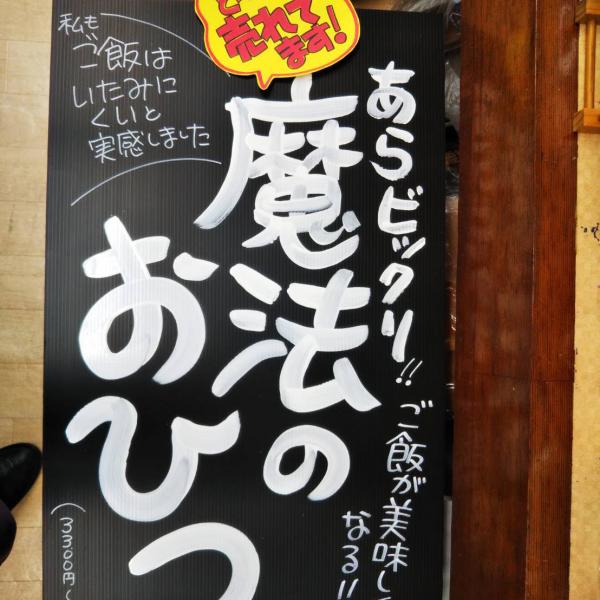 売れて
ます!
あらビックリ!!
ご飯が美味し
なる!!
魔法の
おひつ
私も
ご飯は
いたみに
くいと
実感しました
(3300円~